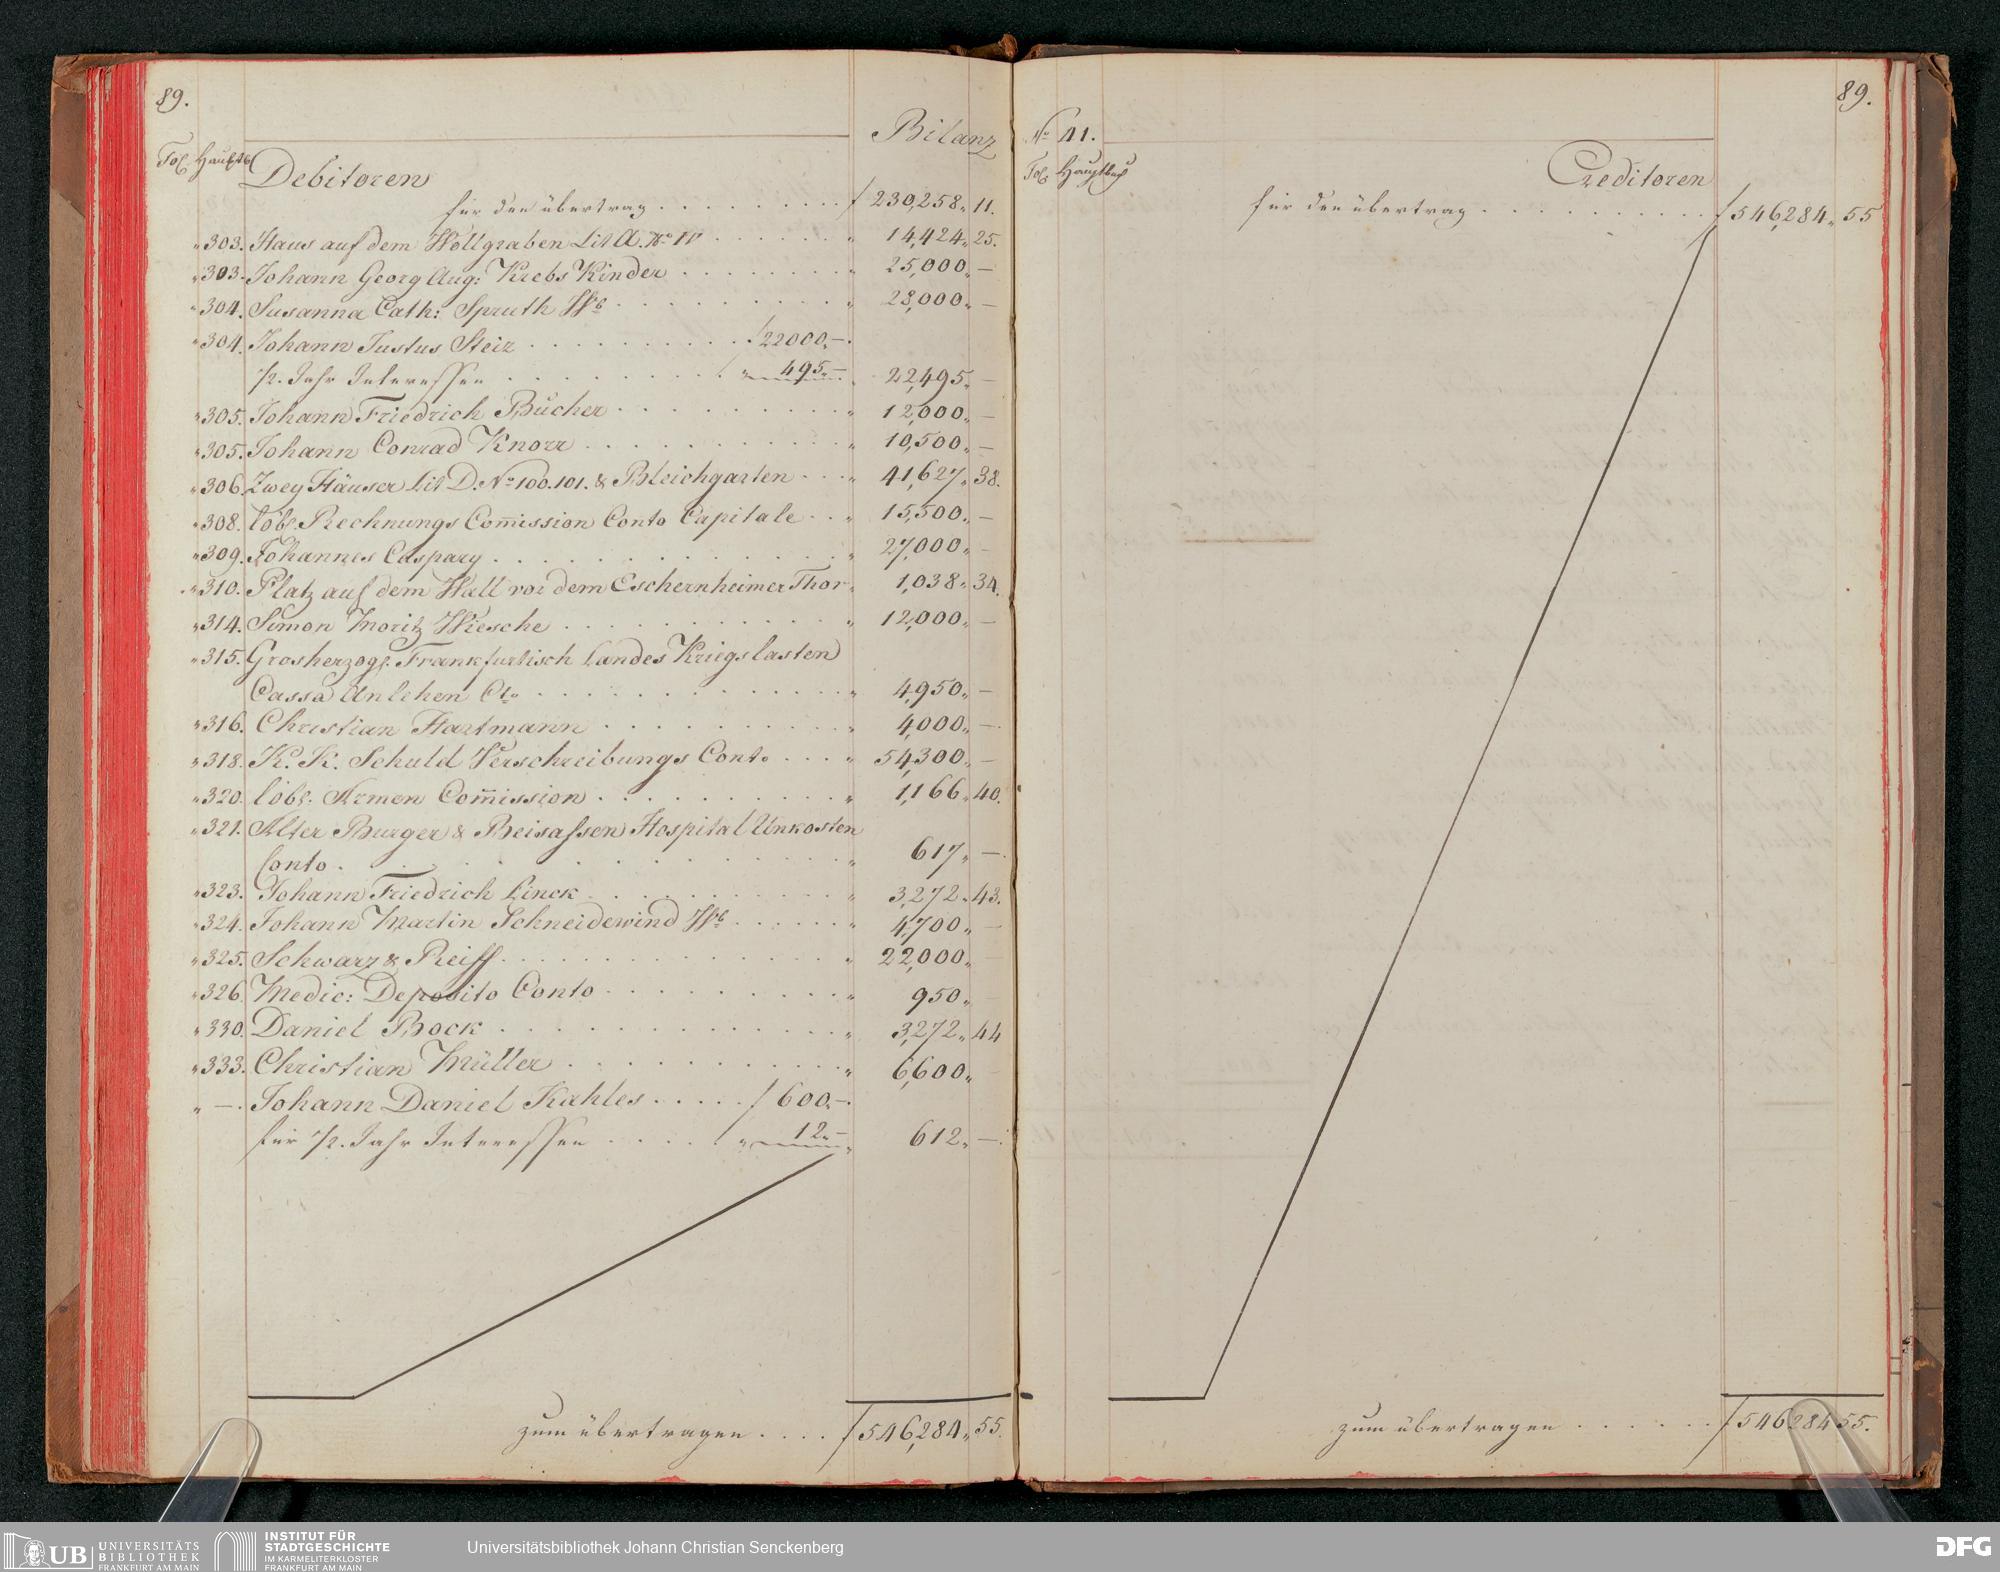 89.
Bilanz
Fol. Hauptb
Debitoren
für den übertrag . . . . . . . . . f 230,258 „ 11.
„ 303. Haus auf dem Wollgraben Lit A. No . . . . . . „ 14,424 „ 25.
„ 303. Johann Georg Aug: Krebs Kinder . . . . . . . „ 25,000 „ —
„ 304. Susanna Cath: Spruth Wb . . . . . . . . „ 28,000 „ —
„ 304. Johann Justus Steiz . . . . . . . . . . f 22000 „ — .
1/2. Jahr Interessen . . . . . . . . . „ 495 „ — „ 22,495 „ —
„ 305. Johann Friedrich Bücher . . . . . . . . . „ 12,000 „ —
„ 305. Johann Conrad Knorr . . . . . . . . . . „ 10,500 „ —
„ 306. Zwey Häuser Lit D. No 100. 101. & Bleichgarten . . . „ 41,627 „ 38.
„ 308. löbl. Rechnungs Com̄ission Conto Capitale . . „ 15,500 „ —
„ 309. Johannes Caspary . . . . . . . . . . „ 27,000 „ —
„ 310. Platz auf dem Wall vor dem Eschernheimer Thor „ 1,038 „ 34.
„ 314. Simon Moritz Wiesche . . . . . . . . . . „ 12,000 „ —
„ 315. Grosherzogl. Frankfurtisch Landes Kriegslasten
Cassa Anlehen Cto . . . . . . . . . . . „ 4,950 „ —
„ 316. Christian Hartmann . . . . . . . . . „ 4,000 „ —
„ 318. K. K. Schuld Verschreibungs Conto . . . . „ 54,300 „ —
„ 320. löbl. Armen Com̄ission . . . . . . . . . „ 1,166 „ 40.
„ 321. Alter Burger & Beisassen Hospital Unkosten
Conto . . . . . . . . . . . . . . „ 617 „ — .
„ 323. Johann Friedrich Linck . . . . . . . . . „ 3,272 „ 43.
„ 324. Johann Martin Schneidewind Wb . . . . . . „ 4,700 „ —
„ 325. Schwarz & Reiff . . . . . . . . . . . . „ 22,000 „ —
„ 326. Medic: Deposito Conto . . . . . . . . . „ 950 „
„ 330. Daniel Bock . . . . . . . . . . . . „ 3,272 „ 44
„ 333. Christian Müller . . . . . . . . . . „ 6,600 „
„ — . Johann Daniel Kahles . . . . . f 600 „ — .
für 1/2. Jahr Interessen . . . . . „ 12 „ — „ 612 „ — .
zum übertragen . . . . f 546,284 „ 55.
89.
No 41.
Fol. Hauptbuch
Creditoren
für den übertrag . . . . . . . . . . f 546,284 „ 55
zum übertragen . . . . . . f 546284 55.
UB UNIVERSITÄTS
BIBLIOTHEK
FRANKFURT AM MAIN
INSTITUT FÜR
STADTGESCHICHTE
IM KARMELITERKLOSTER
FRANKFURT AM MAIN
Universitätsbibliothek Johann Christian Senckenberg
DFG